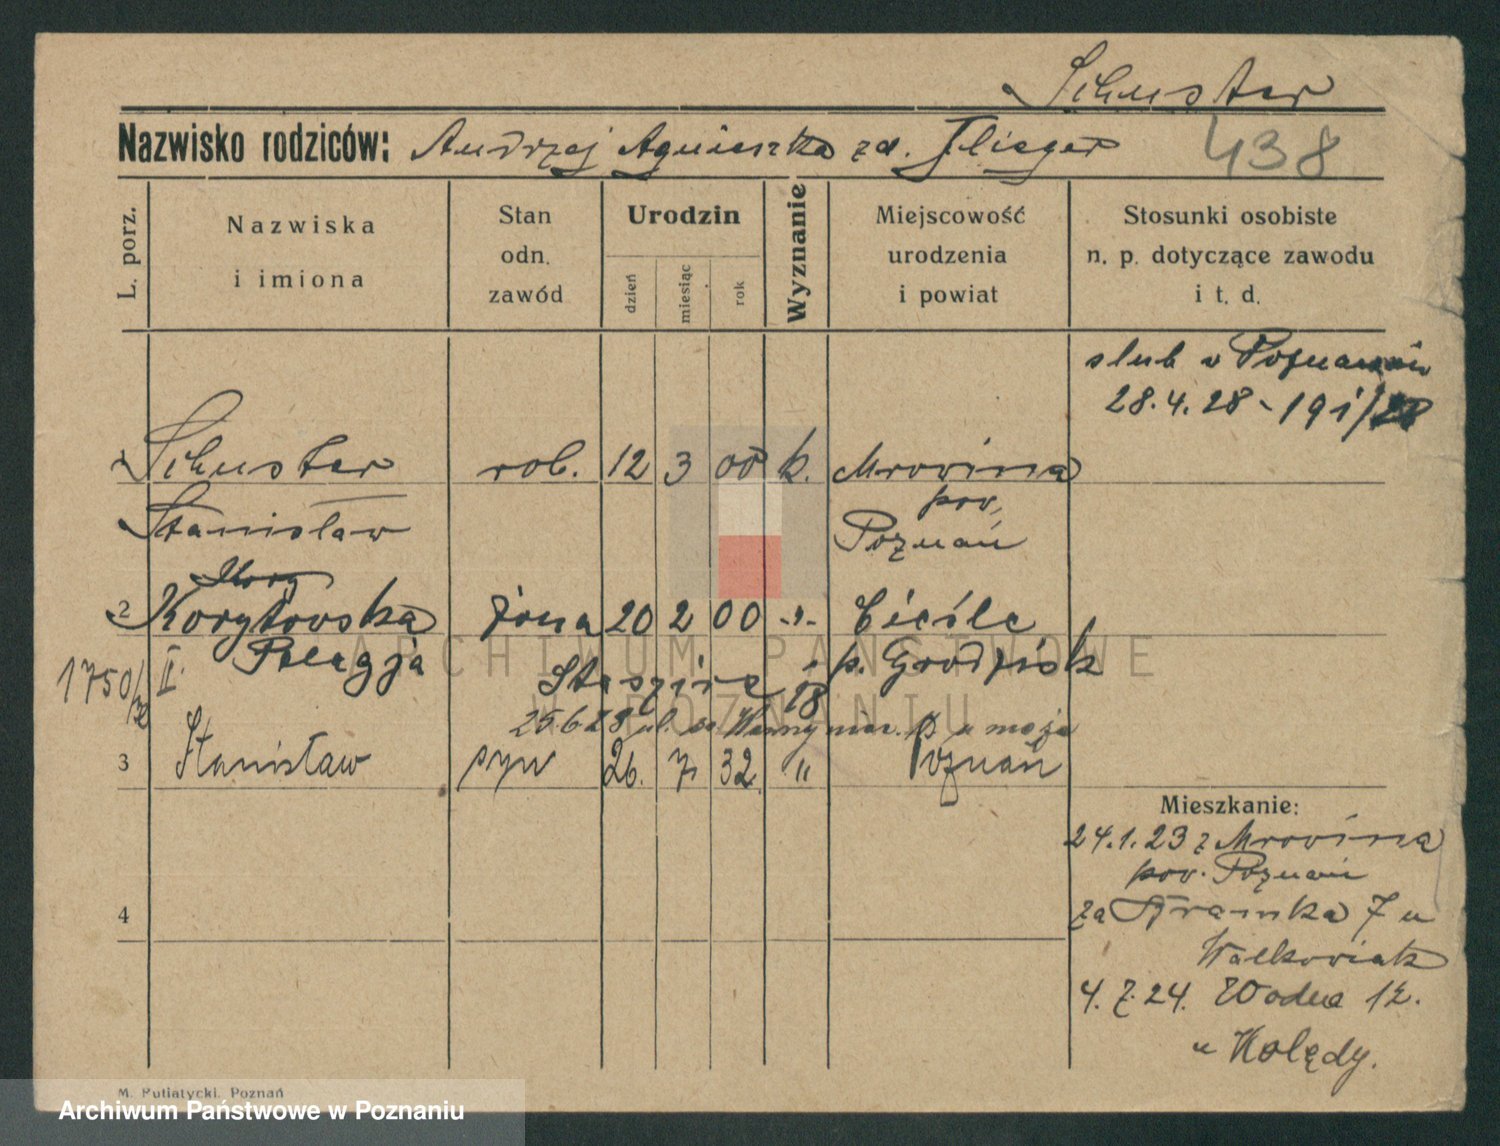 Schuster
Nazwisko rodziców: Andrzej Agnieszka zd. Flieger
438
L. porz.
Nazwiska
i imiona
Stan
odn.
zawód
Urodzin
dzień
miesiąc
rok
Wyznanie
Miejscowość
urodzenia
i powiat
Stosunki osobiste
n. p. dotyczące zawodu
i t. d.
slub w Poznaniu
28.4.28 - 191/28
1 Schuster rob. 12 3 00 k. Mrowina
pow.
Stanisław Poznań
2 Korytowska żona 20 2 00 -"- Cieśle
II. Pelagja p. Grodzisk
1750/32
Staszica 18
25.6.28 ul.
3 Stanisław syn 26. 7 32 " Poznań
Mieszkanie:
24.1.23 z Mrowina
pow. Poznań
za Bramka 7 u
Walkowiak
4
4.7.24. Wodna 12.
u Kolędy.
M. Putiatycki, Poznań
ARCHIWUM PAŃSTWOWE
W POZNANIU
Archiwum Państwowe w Poznaniu